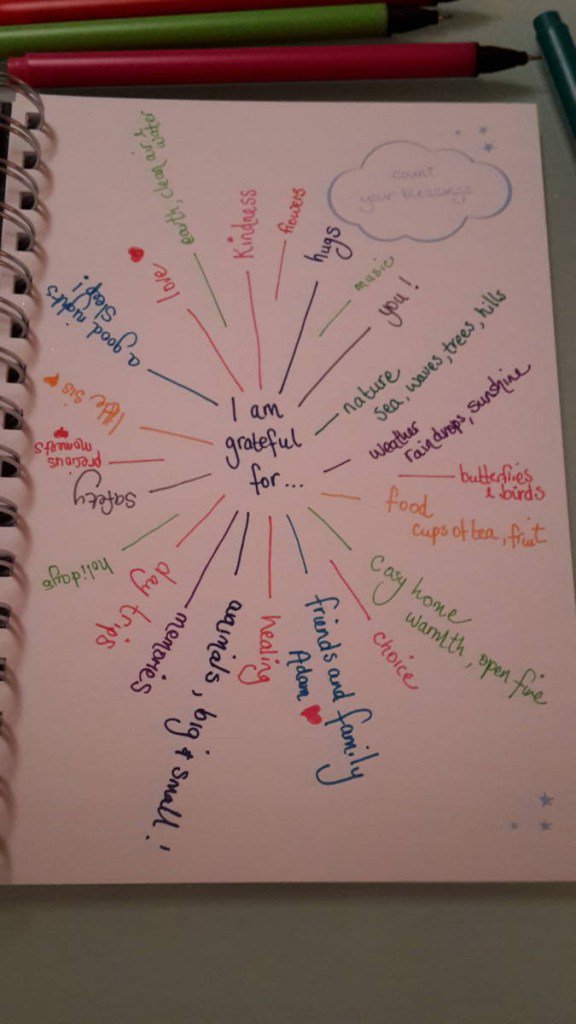 count
your blessings
I am
grateful
for...
earth, clean air,
water
kindness
flowers
hugs
music
you!
nature
sea, waves, trees, hills
weather
raindrops, sunshine
butterflies
& birds
food
cups of tea, fruit
cosy home
warmth, open fire
choice
friends and family
Adam
healing
animals, big & small!
memories
day trips
holidays
safety
precious
moments
little sis
a good night's
sleep!
love